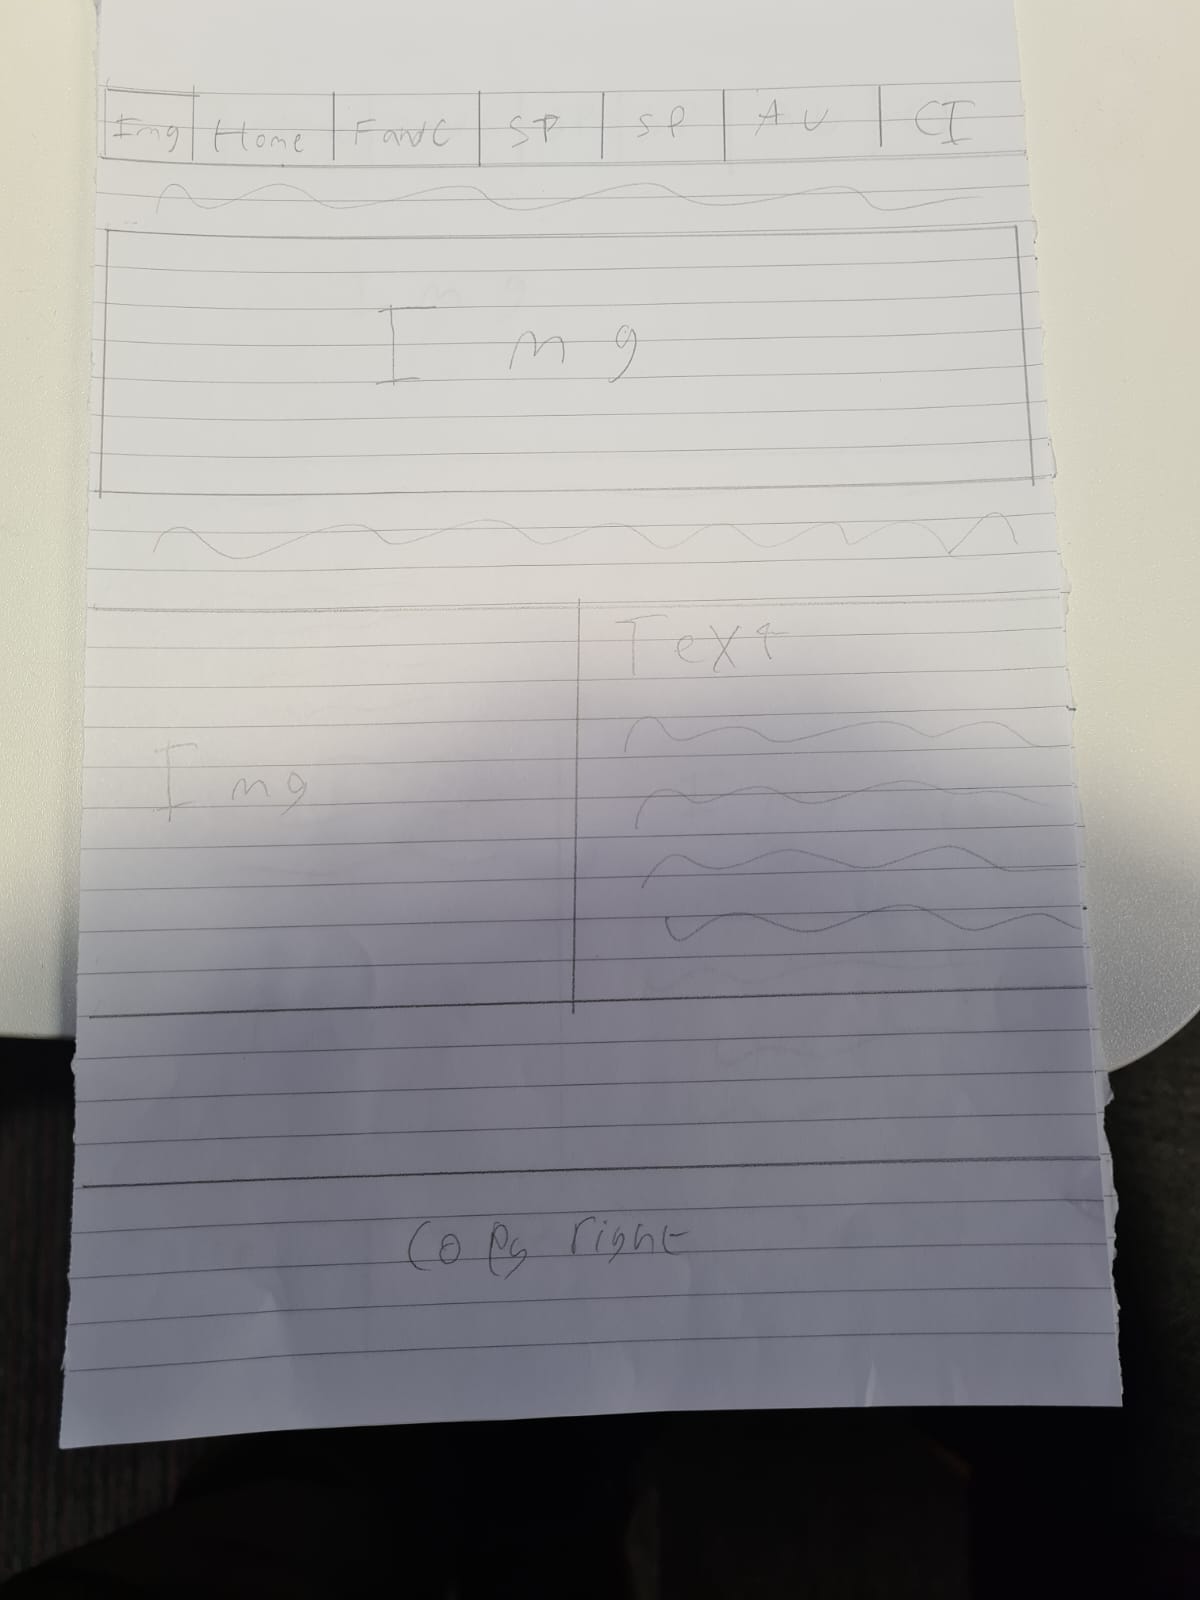 Img Home FandC SP SP AU CI
Img
Text
Img
Copy right